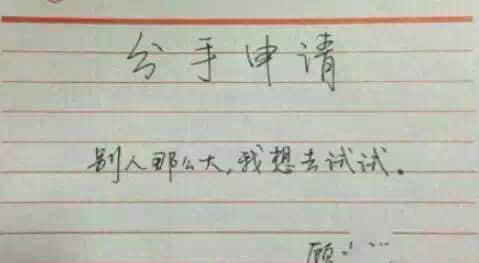 分手申请
别人那么大,我想去试试。
顾